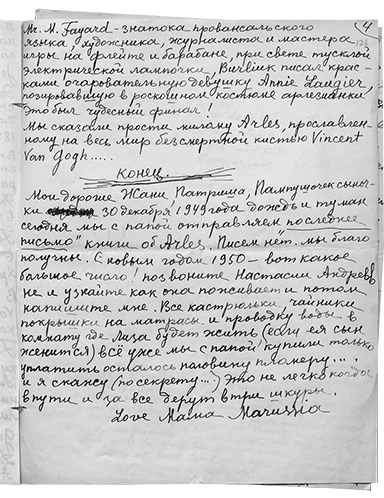 4
Mr. M. Fayard - знатока провансальского
языка, художника, журналиста и мастера
игры на флейте и барабане, при свете тусклой
электрической лампочки, Burliuk писал крас-
ками очаровательную девушку Annie Laugier,
позировавшую в роскошном костюме арлезианки,
Это был чудесный финал!
Мы сказали прости милому Arles, прославлен-
ному на весь мир безсмертной кистью Vincent
Van Gogh.....
КОНЕЦ.
Мои дорогие Жани Патриша, Пампушочек сыноч-
ки 30 декабря! 1949 года дождь и туман
сегодня мы с папой отправляем последнее
письмо" книги об Arles. Писем нет. мы благо
получны. С новым годом 1950 - вот какое
большое число! позвоните Настасии Андреев
не и узнайте как она поживает и потом
напишите мне. Все кастрюльки, чайники
покрышки на матрасы и проводку воды в
комнату где Лиза будет жить (если ея сын
женится) всё уже мы с папой! купили только
уплатить осталось половину пломеру....
и я скажу (по секрету...) это не легко когда
в пути и за все дерут в три шкуры.
Love Мама Marussia